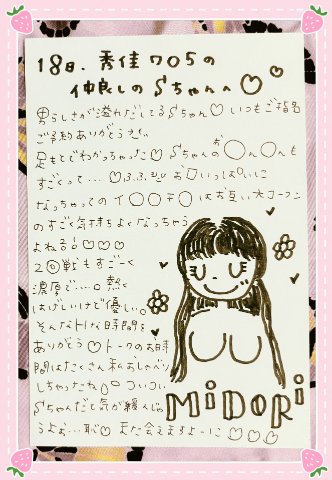 18日、秀佳705の
仲良しのSちゃんへ♡♥
男らしさが溢れだしてるSちゃん♡いつもご指名
ご予約ありがとうえぐ。
足もとでわかっちゃった♡Sちゃんのお〇ん〇んも
すごくって…♡お口いっぱいに
なっちゃってのイ〇〇チ〇はお互い大コーフン
のすご気持ちよくなっちゃう
よね♡♡♡
2回戦もすごーく
濃厚で…。熱く
はげしいけど優しい。
そんなHな時間を
ありがとう♡トークのお時
間はたくさん私おしゃべり
しちゃったね。ついつい
Sちゃんだと気が緩んじゃ
うよぉ…恥♡また会えますよーに♡♡♡
MiDORi